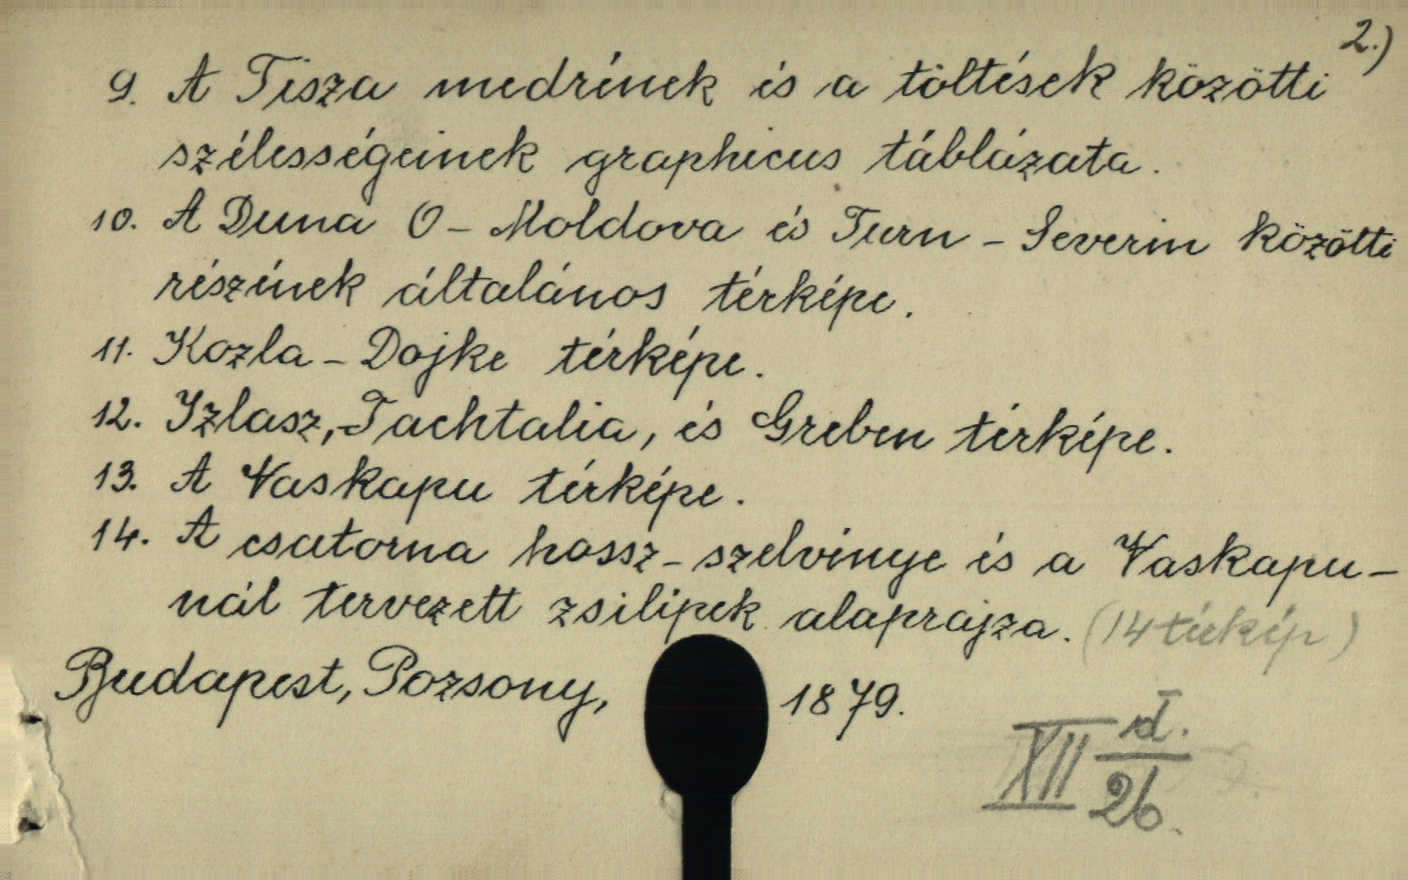 2.)
9. A Tisza medrének és a töltések közötti
szélességeinek graphicus táblázata.
10. A Duna O-Moldova és Turn-Severin közötti
részének általános térképe.
11. Kozla-Dojke térképe.
12. Izlasz,-Tachtalia, és Greben térképe.
13. A Vaskapu térképe.
14. A csatorna hossz-szelvénye és a Vaskapu-
nál tervezett zsilipek alaprajza. (14 térkép)
Budapest, Pozsony, 1879.
XII d. / 26.